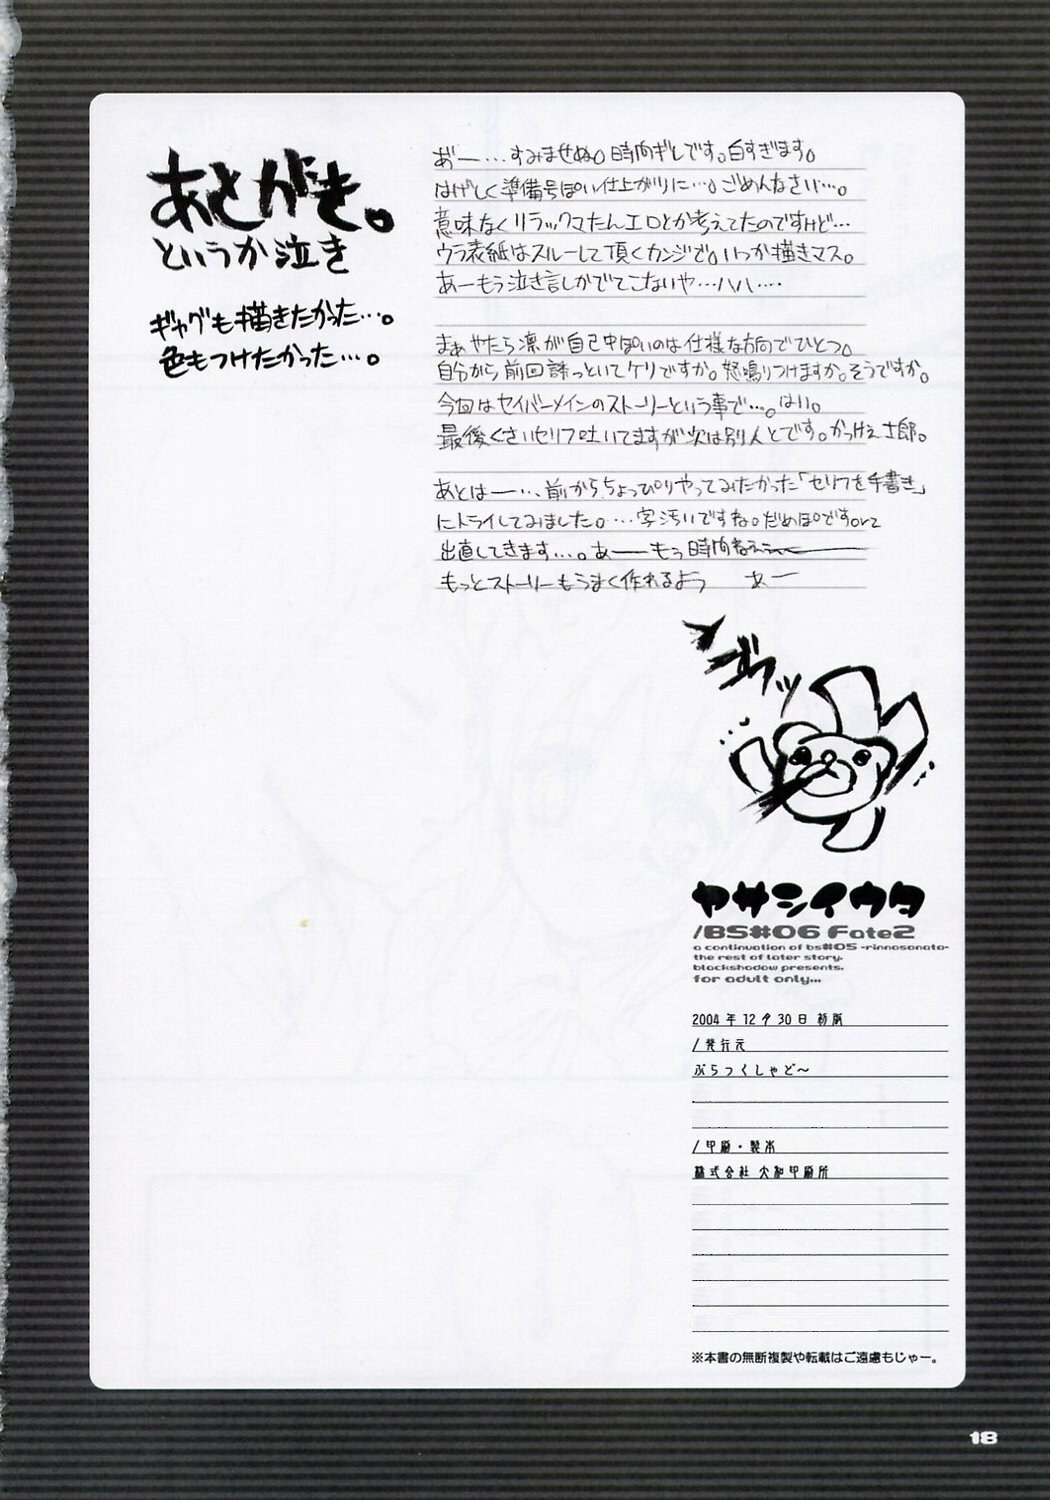 あとがき。
というか泣き
ギャグも描きたかった…。
色もつけたかった…。
あ゛ー…すみませぬ。時間ギレです。白すぎます。
はげしく準備号ぽい仕上がりに…。ごめんなさい…。
意味なくリラックマたんエロとか考えてたのですけど…
ウラ表紙はスルーして頂くカンジで。いつか描きマス。
あーもう泣き言しかでてこないや…ハハ….
まぁやたら凛が自己中ぽいのは仕様な方向でひとつ。
自分から前回誘っといてケリですか。怒鳴りつけますか。そうですか。
今回はセイバーメインのストーリーという事で…。はい。
最後くさいセリフ吐いてますが次は別人とです。かっけぇ士郎。
あとはー…、前からちょっぴりやってみたかった「セリフを手書き」
にトライしてみました。…字汚いですね。だめぽですorz
出直してきます…。あーーもう時間ねぇぇー
もっとストーリーもうまく作れるよう あー
ヤサシイウタ
/BS#06 Fate2
a continuation of bs#05 -rinnosonata-
the rest of later story.
blackshadow presents.
for adult only...
2004年12月30日 初版
/発行元
ぶらっくしゃど〜
/印刷・製本
株式会社 大和印刷所
※本書の無断複製や転載はご遠慮もじゃー。
18